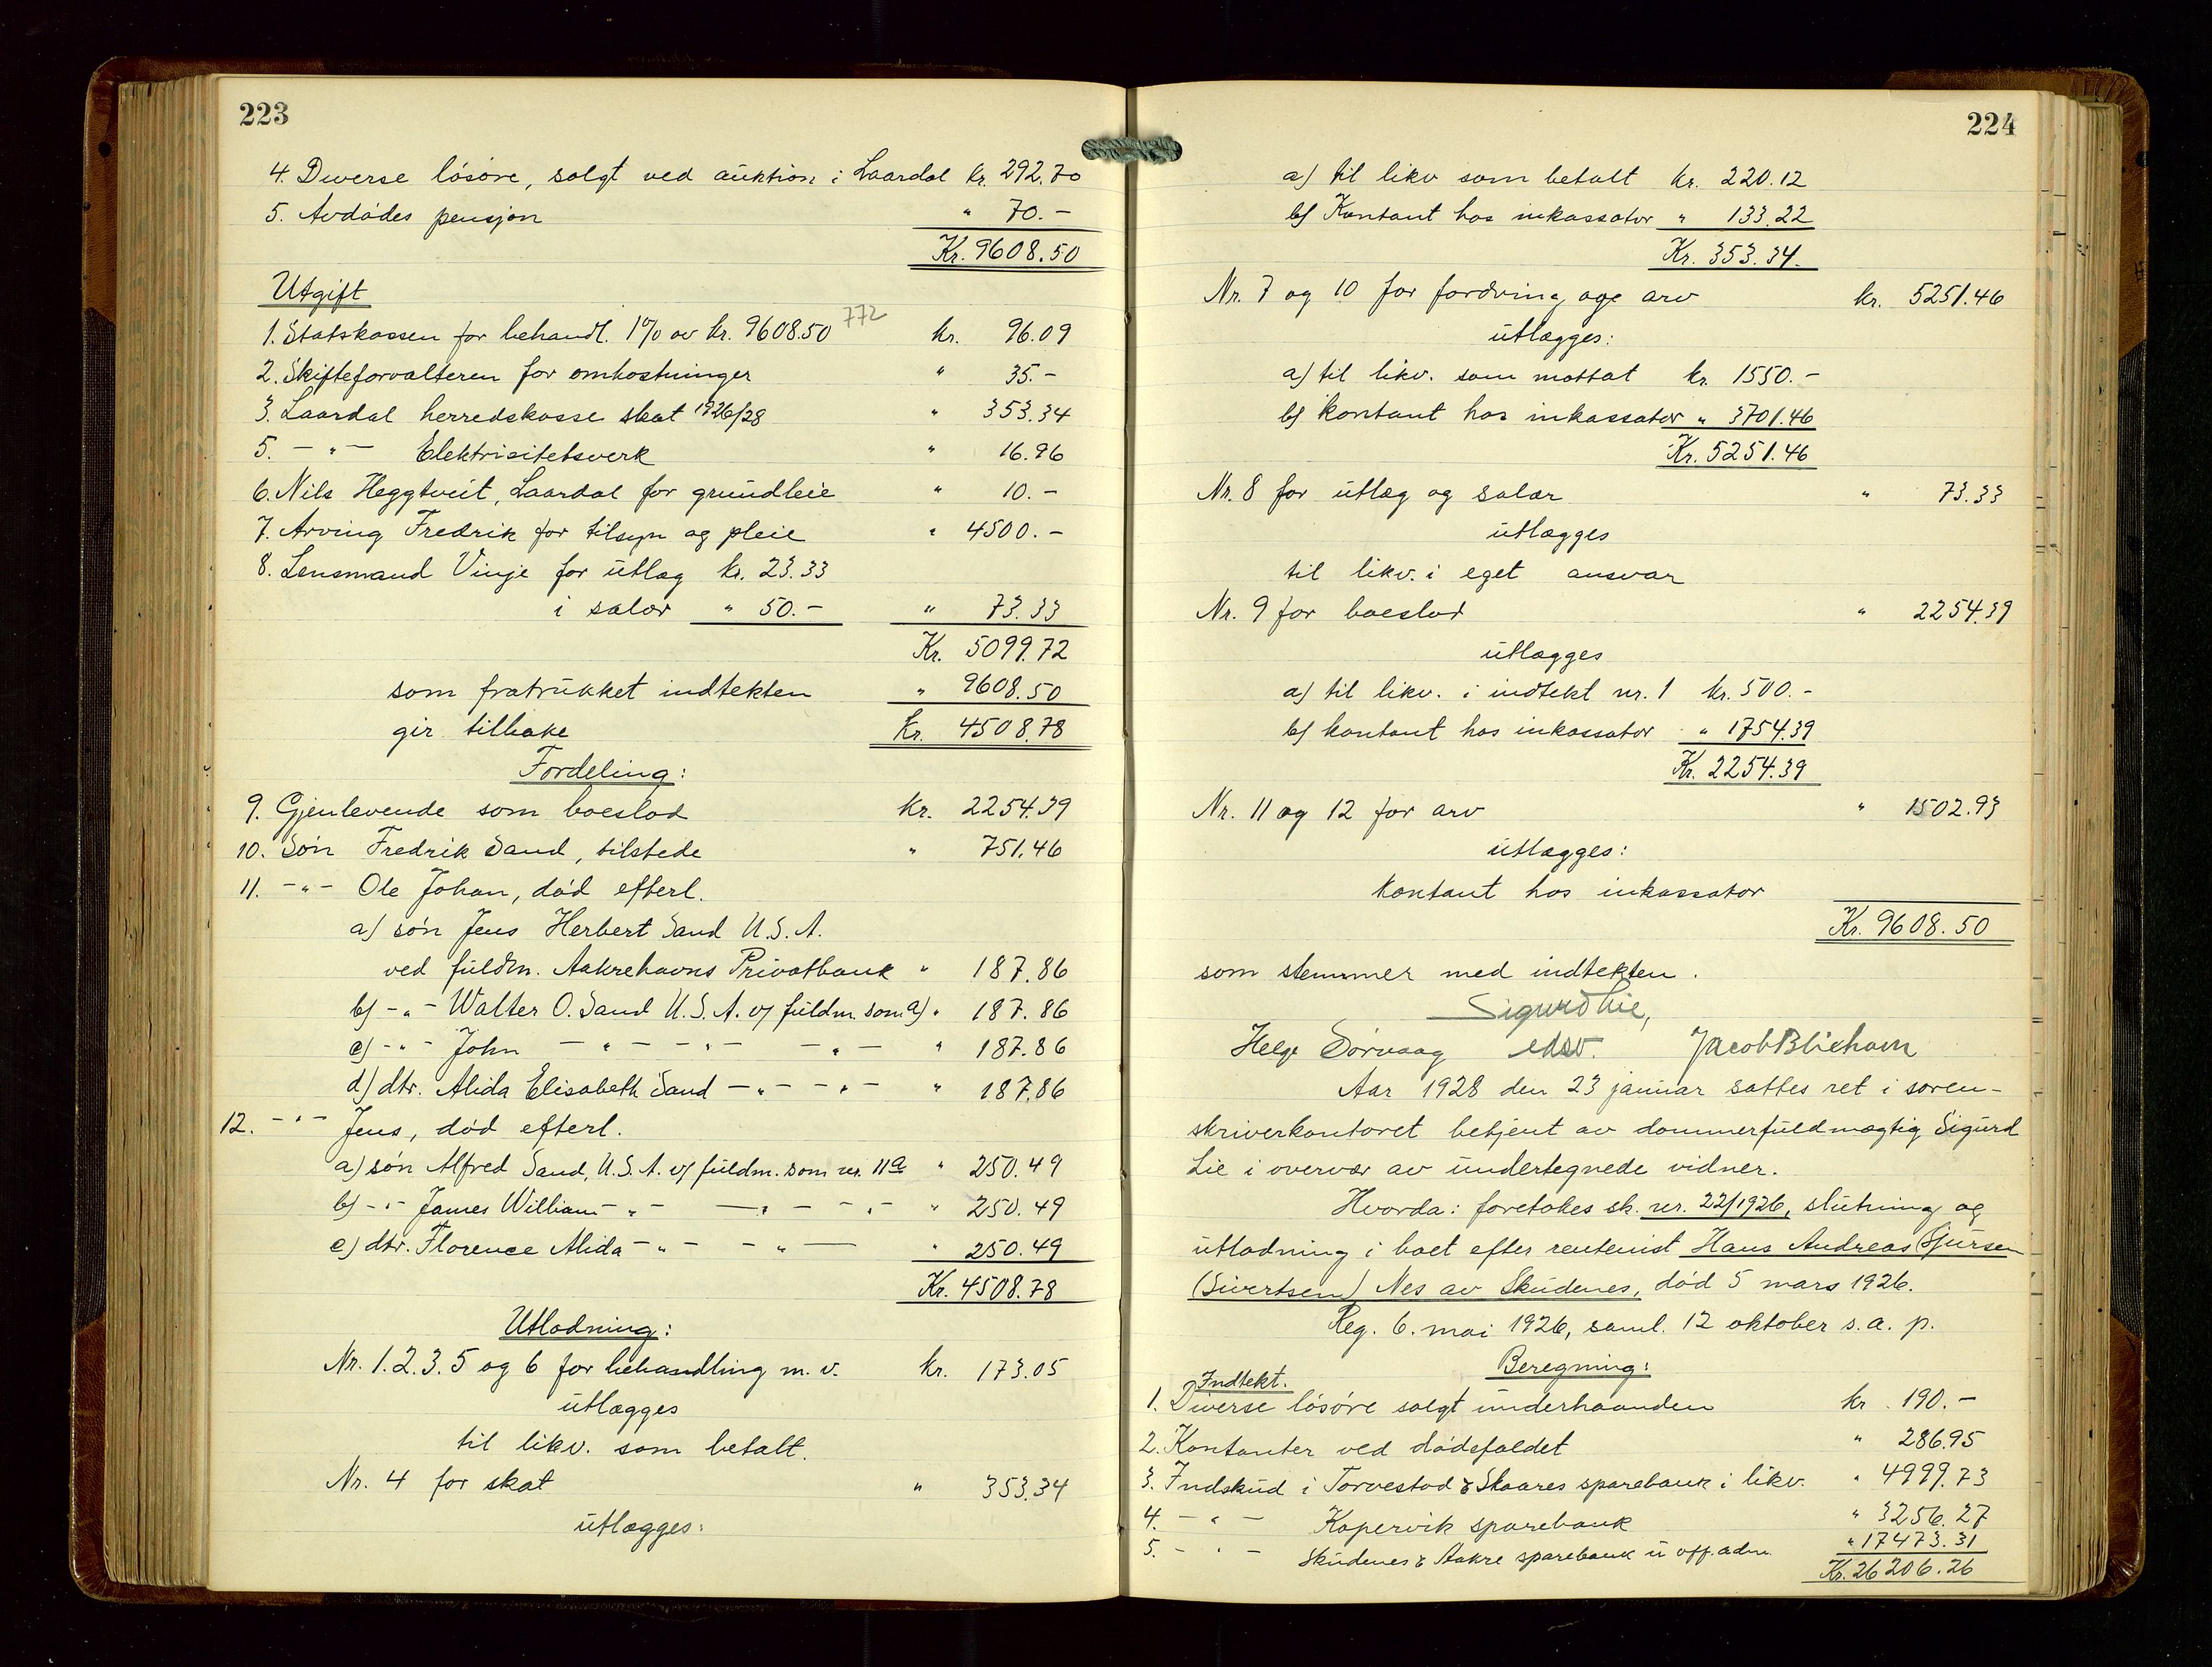 223
4. Diverse løsøre, solgt ved auktion i Laardal kr. 292.70
5. Avdødes pensjon " 70.-
Kr. 9608.50
Utgift
772
1. Statskassen for behandl. 1% av kr. 9608.50 kr. 96.09
2. Skifteforvalteren for omkostninger " 35.-
3. Laardal herredskasse skat 1926/28 " 353.34
5. - " - Elektrisitetsverk " 16.96
6. Nils Heggtveit, Laardal for grundleie " 10.-
7. Arving Fredrik for tilsyn og pleie " 4500.-
8. Lensmand Vinje for utlæg kr. 23.33
i salær " 50.- " 73.33
Kr. 5099.72
som fratrukket indtekten " 9608.50
gir tilbake Kr. 4508.78
Fordeling:
9. Gjenlevende som boeslod kr. 2254.39
10. Søn Fredrik Sand, tilstede " 751.46
11. - " - Ole Johan, død efterl.
a) søn Jens Herbert Sand U.S.A.
ved fuldm. Aakrehavns Privatbank " 187.86
b) - " - Walter O. Sand U.S.A. v/ fuldm. som a) " 187.86
c) - " - John - " - - " - - " - " 187.86
d) dtr. Alida Elisabeth Sand - " - - " - " 187.86
12. - " - Jens, død efterl.
a) søn Alfred Sand, U.S.A. v/ fuldm. som nr. 11a " 250.49
b) - " - James William - " - - " - - " - " 250.49
c) dtr. Florence Alida - " - - " - " 250.49
Kr. 4508.78
Utlodning:
Nr. 1.2.3.5 og 6 for behandling m.v. kr. 173.05
utlægges
til likv. som betalt.
Nr. 4 for skat " 353.34
utlægges:
224
a) til likv som betalt kr. 220.12
b) Kontant hos inkassator " 133.22
Kr. 353.34.
Nr. 7 og 10 for fordring og arv kr. 5251.46
utlægges:
a) til likv. som mottat kr. 1550.-
b) kontant hos inkassator " 3701.46
Kr. 5251.46
Nr. 8 for utlæg og salær " 73.33
utlægges
til likv. i eget ansvar
Nr. 9 for boeslod " 2254.39
utlægges
a) til likv. i indtekt nr. 1 kr. 500.-
b) kontant hos inkassator " 1754.39
Kr. 2254.39
Nr. 11 og 12 for arv " 1502.93
utlægges:
kontant hos inkassator
Kr. 9608.50
som stemmer med indtekten.
Sigurd Lie,
Helge Sørvaag edsv. Jacob Blixhavn
Aar 1928 den 23 januar sattes ret i soren-
skriverkontoret betjent av dommerfuldmægtig Sigurd
Lie i overvær av undertegnede vidner.
Hvorda: foretokes sk. nr. 22/1926, slutning og
utlodning i boet efter rentenist Hans Andreas Sjursen
(Sivertsen) Nes av Skudenes, død 5 mars 1926.
Reg. 6. mai 1926, saml. 12 oktober s.a. p.
Beregning:
Indtekt.
1. Diverse løsøre solgt underhaanden kr. 190.-
2. Kontanter ved dødsfaldet " 286.95
3. Indskud i Torvestad & Skaares sparebank i likv. " 4999.73
4. - " - Kopervik sparebank " 3256.27
5. - " - Skudenes & Aakre sparebank u off. adm. " 17473.31
Kr. 26206.26